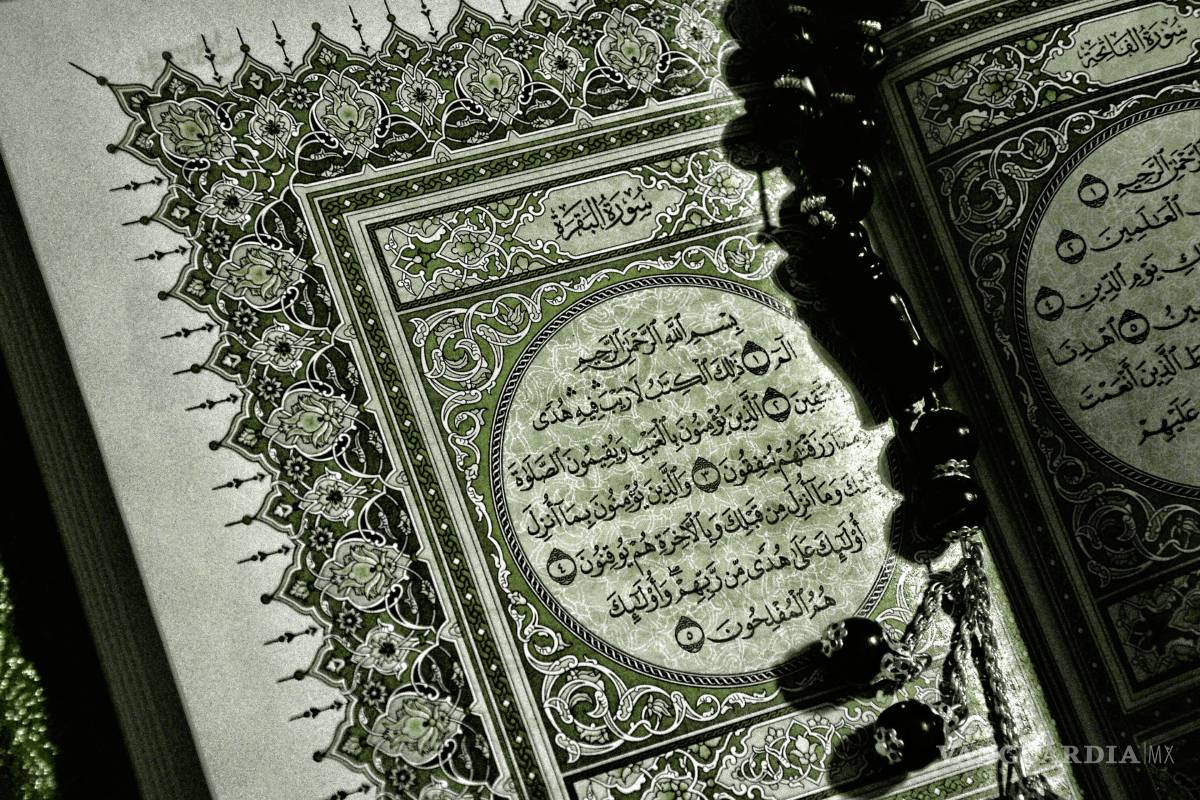 سُورَةُ الْفَاتِحَةِ
ٱلرَّحِيمِ ١
ٱلْعَٰلَمِينَ ٢
يَوْمِ ٱلدِّينِ ٤
٥ ٱهْدِنَا
ٱلَّذِينَ أَنْعَمْتَ
عَلَيْهِمْ
سُورَةُ الْبَقَرَةِ
بِسْمِ ٱللَّهِ ٱلرَّحْمَٰنِ ٱلرَّحِيمِ
الٓمٓ ١ ذَٰلِكَ ٱلْكِتَٰبُ لَا رَيْبَ فِيهِ هُدًى
٢ ٱلَّذِينَ يُؤْمِنُونَ بِٱلْغَيْبِ وَيُقِيمُونَ ٱلصَّلَوٰةَ
رَزَقْنَٰهُمْ يُنفِقُونَ ٣ وَٱلَّذِينَ يُؤْمِنُونَ بِمَآ أُنزِلَ
وَمَآ أُنزِلَ مِن قَبْلِكَ وَبِٱلْءَاخِرَةِ هُمْ يُوقِنُونَ ٤
أُو۟لَٰٓئِكَ عَلَىٰ هُدًى مِّن رَّبِّهِمْ ۖ وَأُو۟لَٰٓئِكَ
هُمُ ٱلْمُفْلِحُونَ ٥
VANGUARDIA|MX